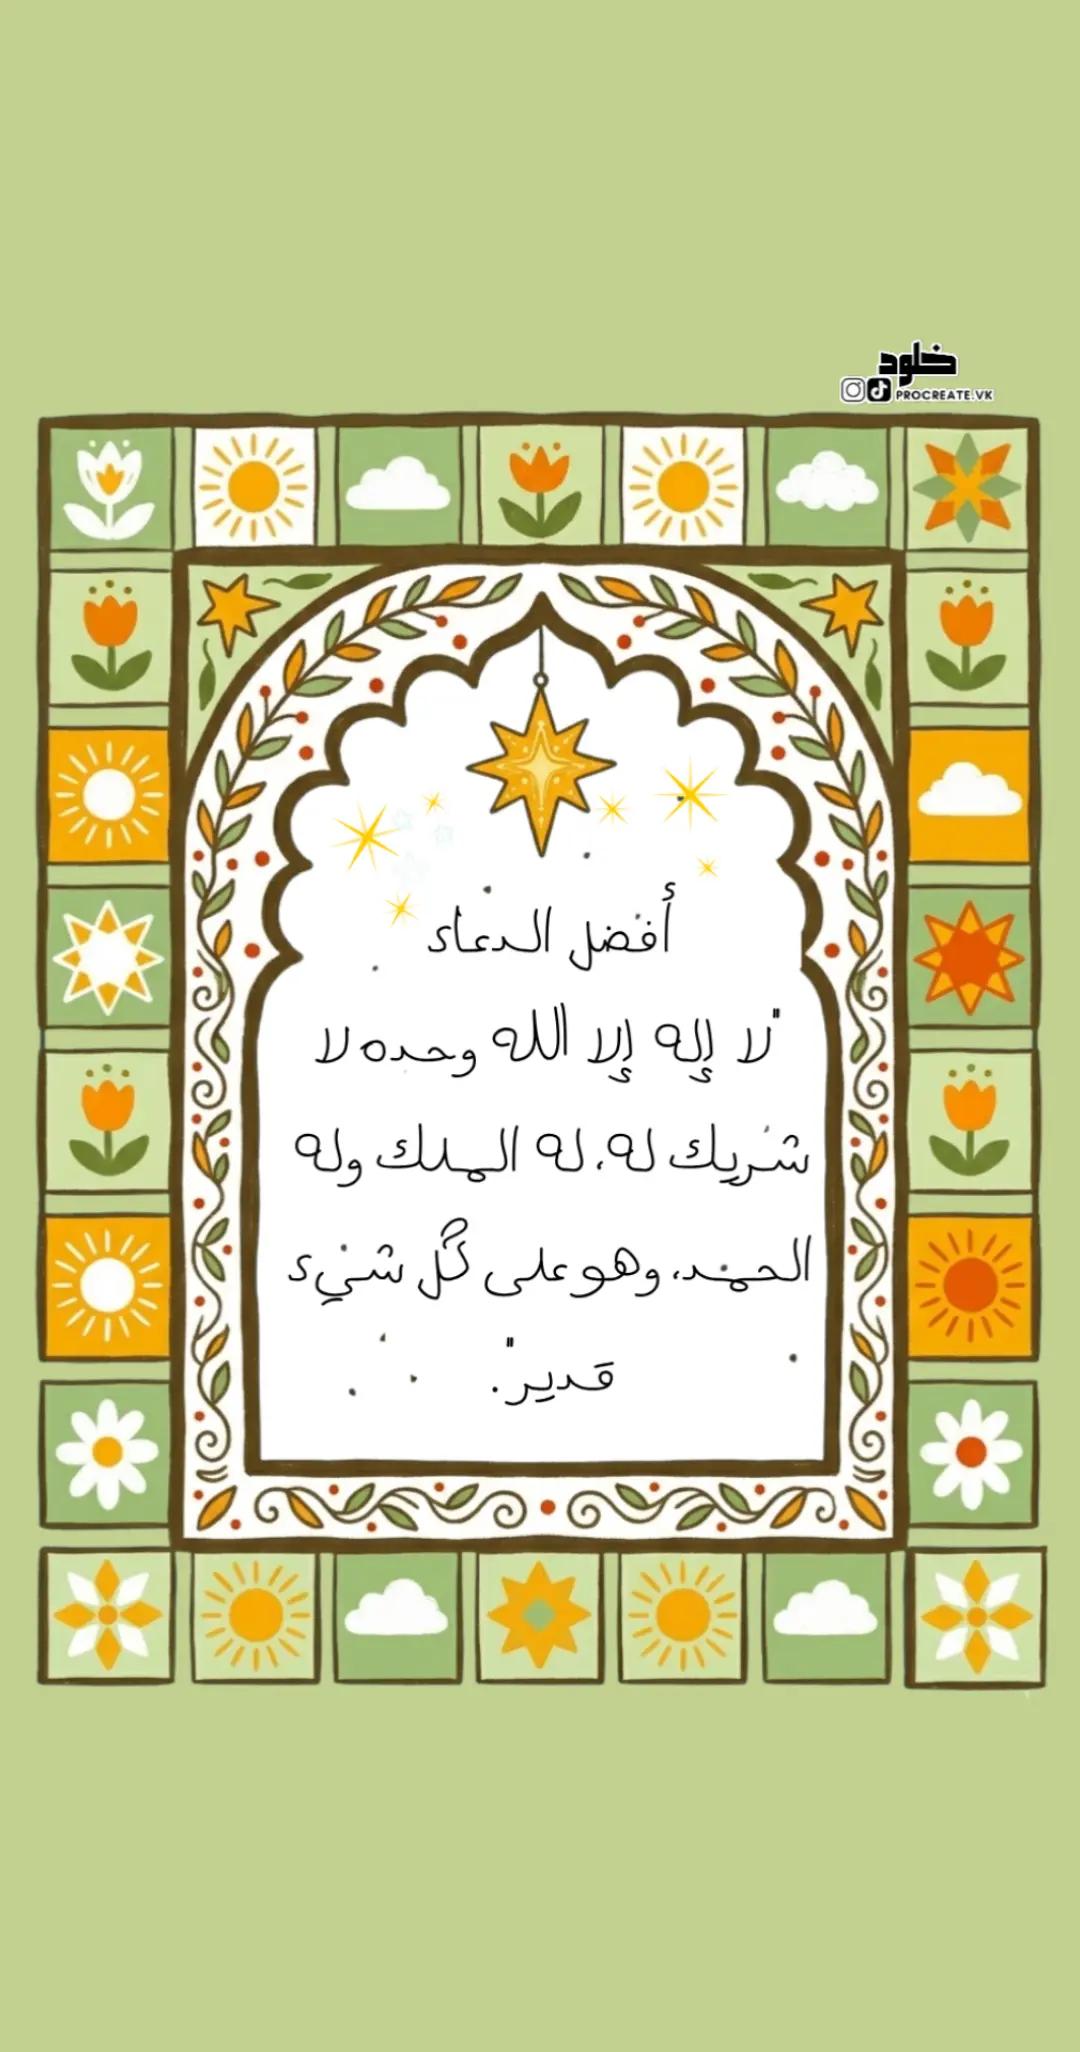 خلود
PROCREATE.VK
أفضل الدعاء
"لا إله إلا الله وحده لا
شريك له، له الملك وله
الحمد، وهو على كُل شيء
قدير".